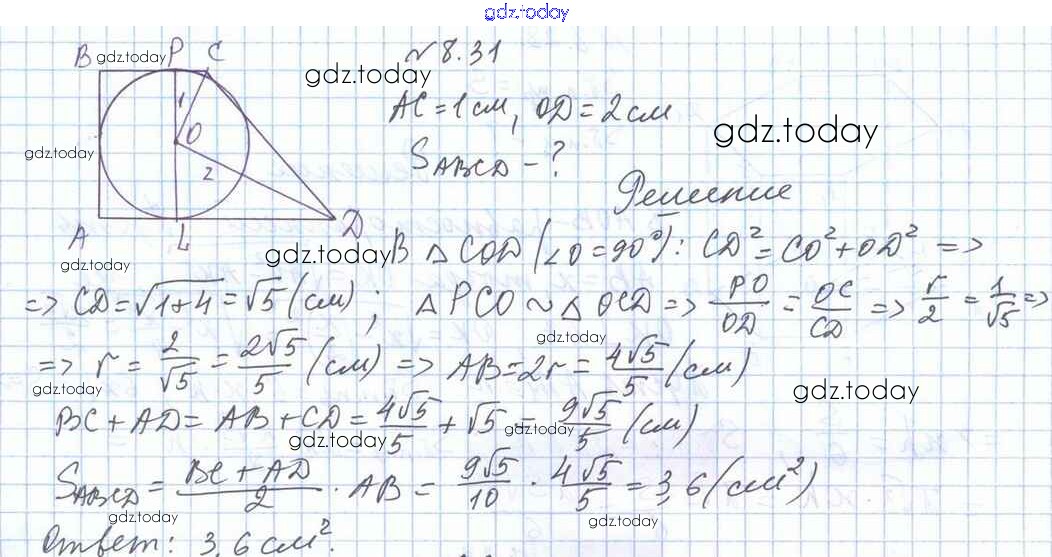 gdz.today
№8.31
B gdz.today P C
gdz.today
AC = 1 см, OD = 2 см
gdz.today
1
O
gdz.today
S_ABCD - ?
2
Решение
A L D
gdz.today
gdz.today
В △ COD (∠O = 90°): CD² = CO² + OD² =>
=> CD = √(1+4) = √5 (см); △ PCO ~ △ OCD => PO/OD = OC/CD => r/2 = 1/√5 =>
gdz.today
=> r = 2/√5 = 2√5/5 (см) => AB = 2r = 4√5/5 (см)
gdz.today
gdz.today
BC + AD = AB + CD = 4√5/5 + √5 = 9√5/5 (см)
gdz.today
gdz.today
S_ABCD = (BC + AD)/2 · AB = 9√5/10 · 4√5/5 = 3,6 (см²)
gdz.today
gdz.today
Ответ: 3,6 см².